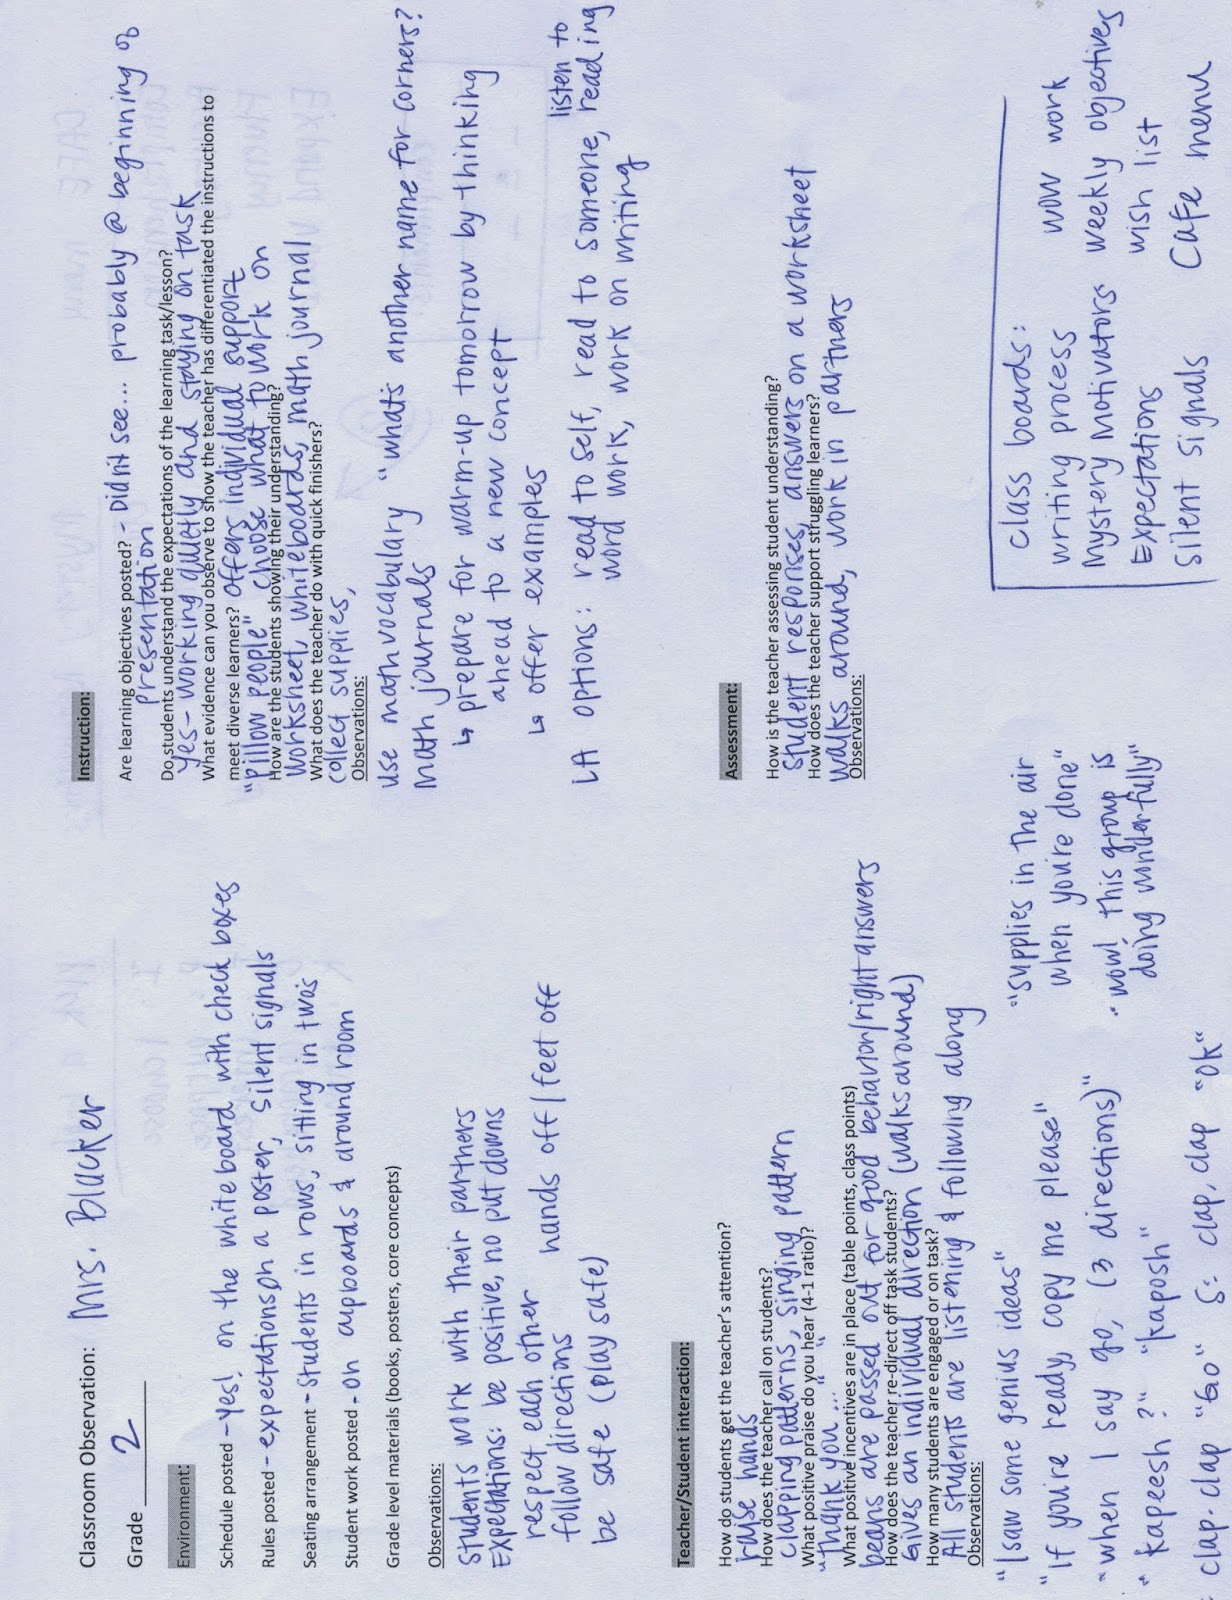 Classroom Observation: Mrs. Blacker
Grade 2
Environment:
Schedule posted - yes! on the white board with check boxes
Rules posted - expectations on a poster, silent signals
Seating arrangement - students in rows, sitting in two's
Student work posted - on cupboards & around room
Grade level materials (books, posters, core concepts)
Observations:
students work with their partners
Expectations: be positive, no put downs
respect each other hands off/feet off
follow directions
be safe (play safe)
Instruction:
Are learning objectives posted? - Didn't see... probably @ beginning of
presentation
Do students understand the expectations of the learning task/lesson?
yes - working quietly and staying on task
What evidence can you observe to show the teacher has differentiated the instructions to
meet diverse learners? offers individual support
"pillow people" choose what to work on
How are the students showing their understanding?
worksheet, whiteboards, math journal
What does the teacher do with quick finishers?
collect supplies,
Observations:
use math vocabulary "what's another name for corners?
math journals
↳ prepare for warm-up tomorrow by thinking
ahead to a new concept
↳ offer examples
LA options: read to self, read to someone, listen to reading
word work, work on writing
Teacher/Student interaction:
How do students get the teacher's attention?
raise hands
How does the teacher call on students?
clapping patterns, singing pattern
What positive praise do you hear (4-1 ratio)?
"thank you..."
What positive incentives are in place (table points, class points)
beans are passed out for good behavior/right answers
How does the teacher re-direct off task students?
Gives an individual direction (walks around)
How many students are engaged or on task?
All students are listening & following along
Observations:
"I saw some genius ideas"
"If you're ready, copy me please"
"when I say go, (3 directions)"
"kapeesh?" "kaposh"
clap. clap "Go" S: clap, clap "OK"
"supplies in the air
when you're done"
"wow! this group is
doing wonderfully"
Assessment:
How is the teacher assessing student understanding?
student responses, answers on a worksheet
How does the teacher support struggling learners?
walks around, work in partners
Observations:
class boards:
writing process wow work
Mystery Motivators weekly objectives
Expectations wish list
silent signals Cafe menu